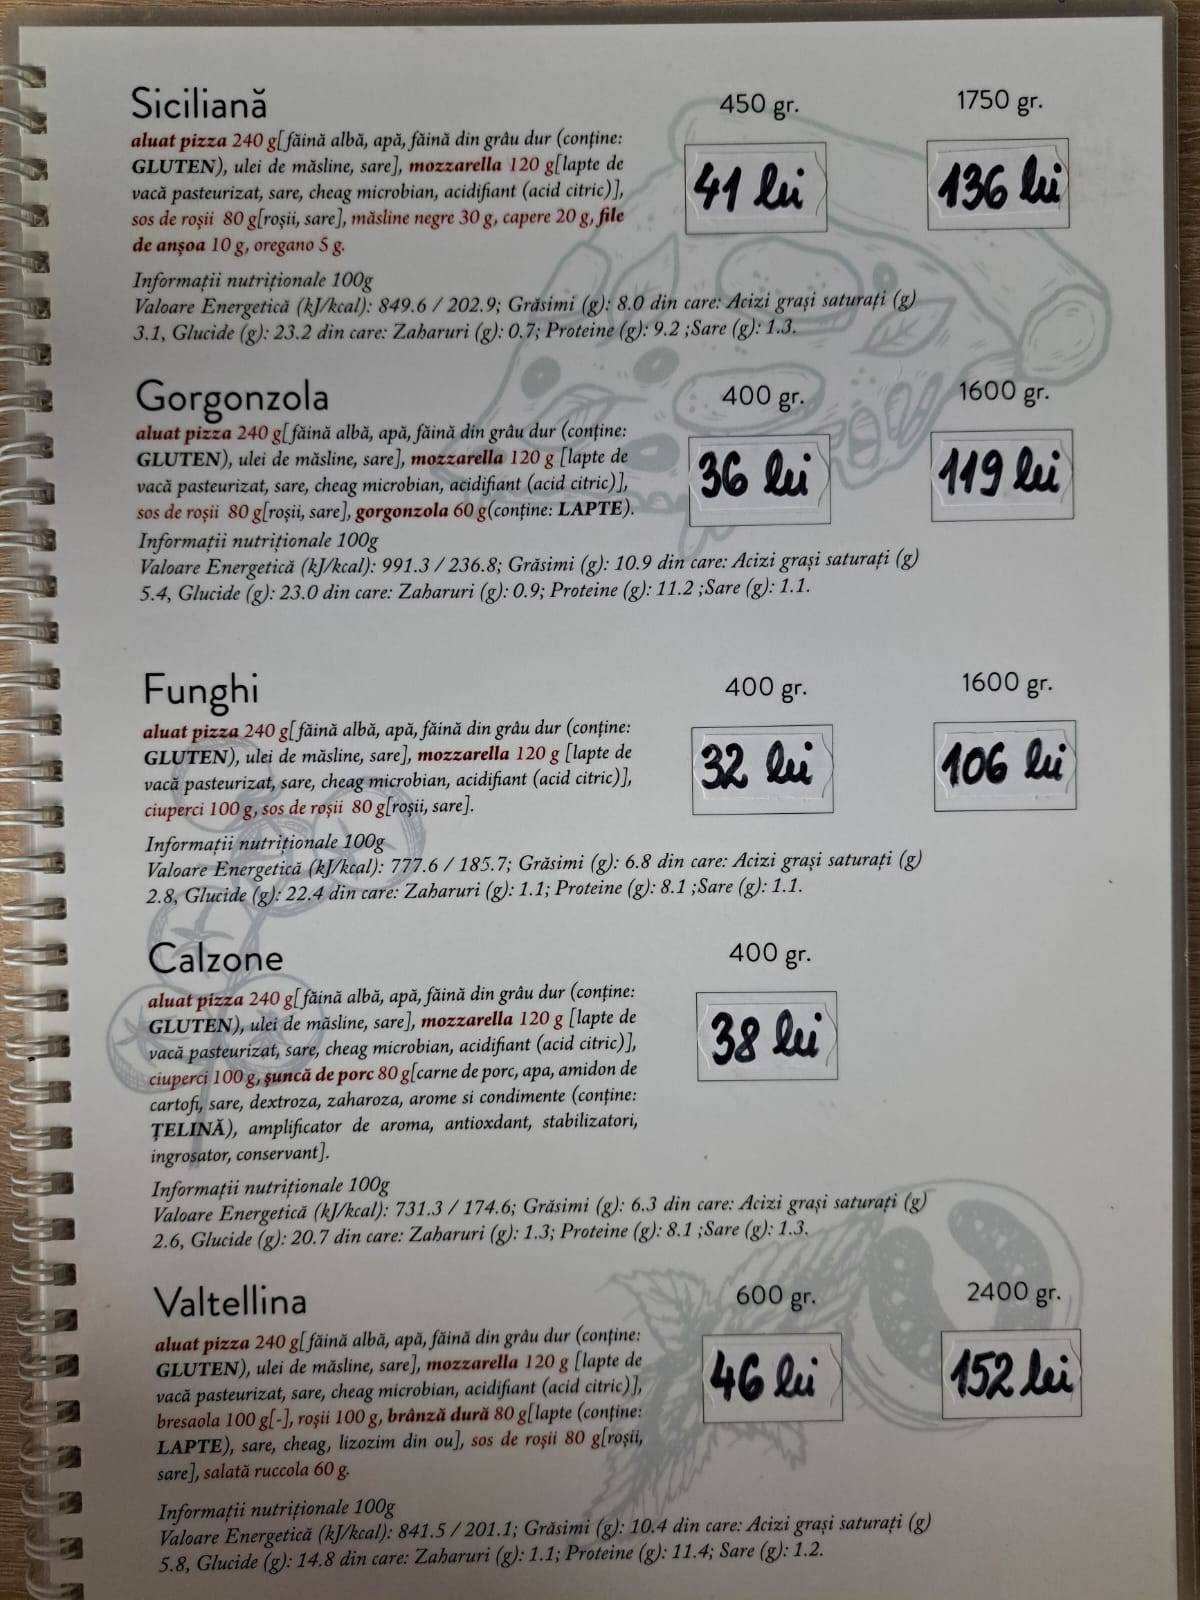 Siciliană
450 gr.
1750 gr.
aluat pizza 240 g[făină albă, apă, făină din grâu dur (conține:
GLUTEN), ulei de măsline, sare], mozzarella 120 g[lapte de
vacă pasteurizat, sare, cheag microbian, acidifiant (acid citric)],
sos de roșii 80 g[roșii, sare], măsline negre 30 g, capere 20 g, file
de anșoa 10 g, oregano 5 g.
41 lei
136 lei
Informații nutriționale 100g
Valoare Energetică (kJ/kcal): 849.6 / 202.9; Grăsimi (g): 8.0 din care: Acizi grași saturați (g)
3.1, Glucide (g): 23.2 din care: Zaharuri (g): 0.7; Proteine (g): 9.2 ;Sare (g): 1.3.
Gorgonzola
400 gr.
1600 gr.
aluat pizza 240 g[făină albă, apă, făină din grâu dur (conține:
GLUTEN), ulei de măsline, sare], mozzarella 120 g [lapte de
vacă pasteurizat, sare, cheag microbian, acidifiant (acid citric)],
sos de roșii 80 g[roșii, sare], gorgonzola 60 g(conține: LAPTE).
36 lei
119 lei
Informații nutriționale 100g
Valoare Energetică (kJ/kcal): 991.3 / 236.8; Grăsimi (g): 10.9 din care: Acizi grași saturați (g)
5.4, Glucide (g): 23.0 din care: Zaharuri (g): 0.9; Proteine (g): 11.2 ;Sare (g): 1.1.
Funghi
400 gr.
1600 gr.
aluat pizza 240 g[făină albă, apă, făină din grâu dur (conține:
GLUTEN), ulei de măsline, sare], mozzarella 120 g [lapte de
vacă pasteurizat, sare, cheag microbian, acidifiant (acid citric)],
ciuperci 100 g, sos de roșii 80 g[roșii, sare].
32 lei
106 lei
Informații nutriționale 100g
Valoare Energetică (kJ/kcal): 777.6 / 185.7; Grăsimi (g): 6.8 din care: Acizi grași saturați (g)
2.8, Glucide (g): 22.4 din care: Zaharuri (g): 1.1; Proteine (g): 8.1 ;Sare (g): 1.1.
Calzone
400 gr.
aluat pizza 240 g[făină albă, apă, făină din grâu dur (conține:
GLUTEN), ulei de măsline, sare], mozzarella 120 g [lapte de
vacă pasteurizat, sare, cheag microbian, acidifiant (acid citric)],
ciuperci 100 g, șuncă de porc 80 g[carne de porc, apa, amidon de
cartofi, sare, dextroza, zaharoza, arome si condimente (conține:
ȚELINĂ), amplificator de aroma, antioxdant, stabilizatori,
ingrosator, conservant].
38 lei
Informații nutriționale 100g
Valoare Energetică (kJ/kcal): 731.3 / 174.6; Grăsimi (g): 6.3 din care: Acizi grași saturați (g)
2.6, Glucide (g): 20.7 din care: Zaharuri (g): 1.3; Proteine (g): 8.1 ;Sare (g): 1.3.
Valtellina
600 gr.
2400 gr.
aluat pizza 240 g[făină albă, apă, făină din grâu dur (conține:
GLUTEN), ulei de măsline, sare], mozzarella 120 g [lapte de
vacă pasteurizat, sare, cheag microbian, acidifiant (acid citric)],
bresaola 100 g[-], roșii 100 g, brânză dură 80 g[lapte (conține:
LAPTE), sare, cheag, lizozim din ou], sos de roșii 80 g[roșii,
sare], salată ruccola 60 g.
46 lei
152 lei
Informații nutriționale 100g
Valoare Energetică (kJ/kcal): 841.5 / 201.1; Grăsimi (g): 10.4 din care: Acizi grași saturați (g)
5.8, Glucide (g): 14.8 din care: Zaharuri (g): 1.1; Proteine (g): 11.4; Sare (g): 1.2.